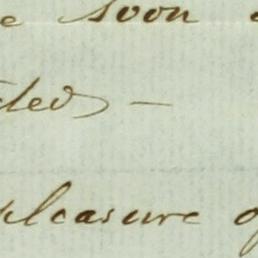 e soon
ted —
pleasure of